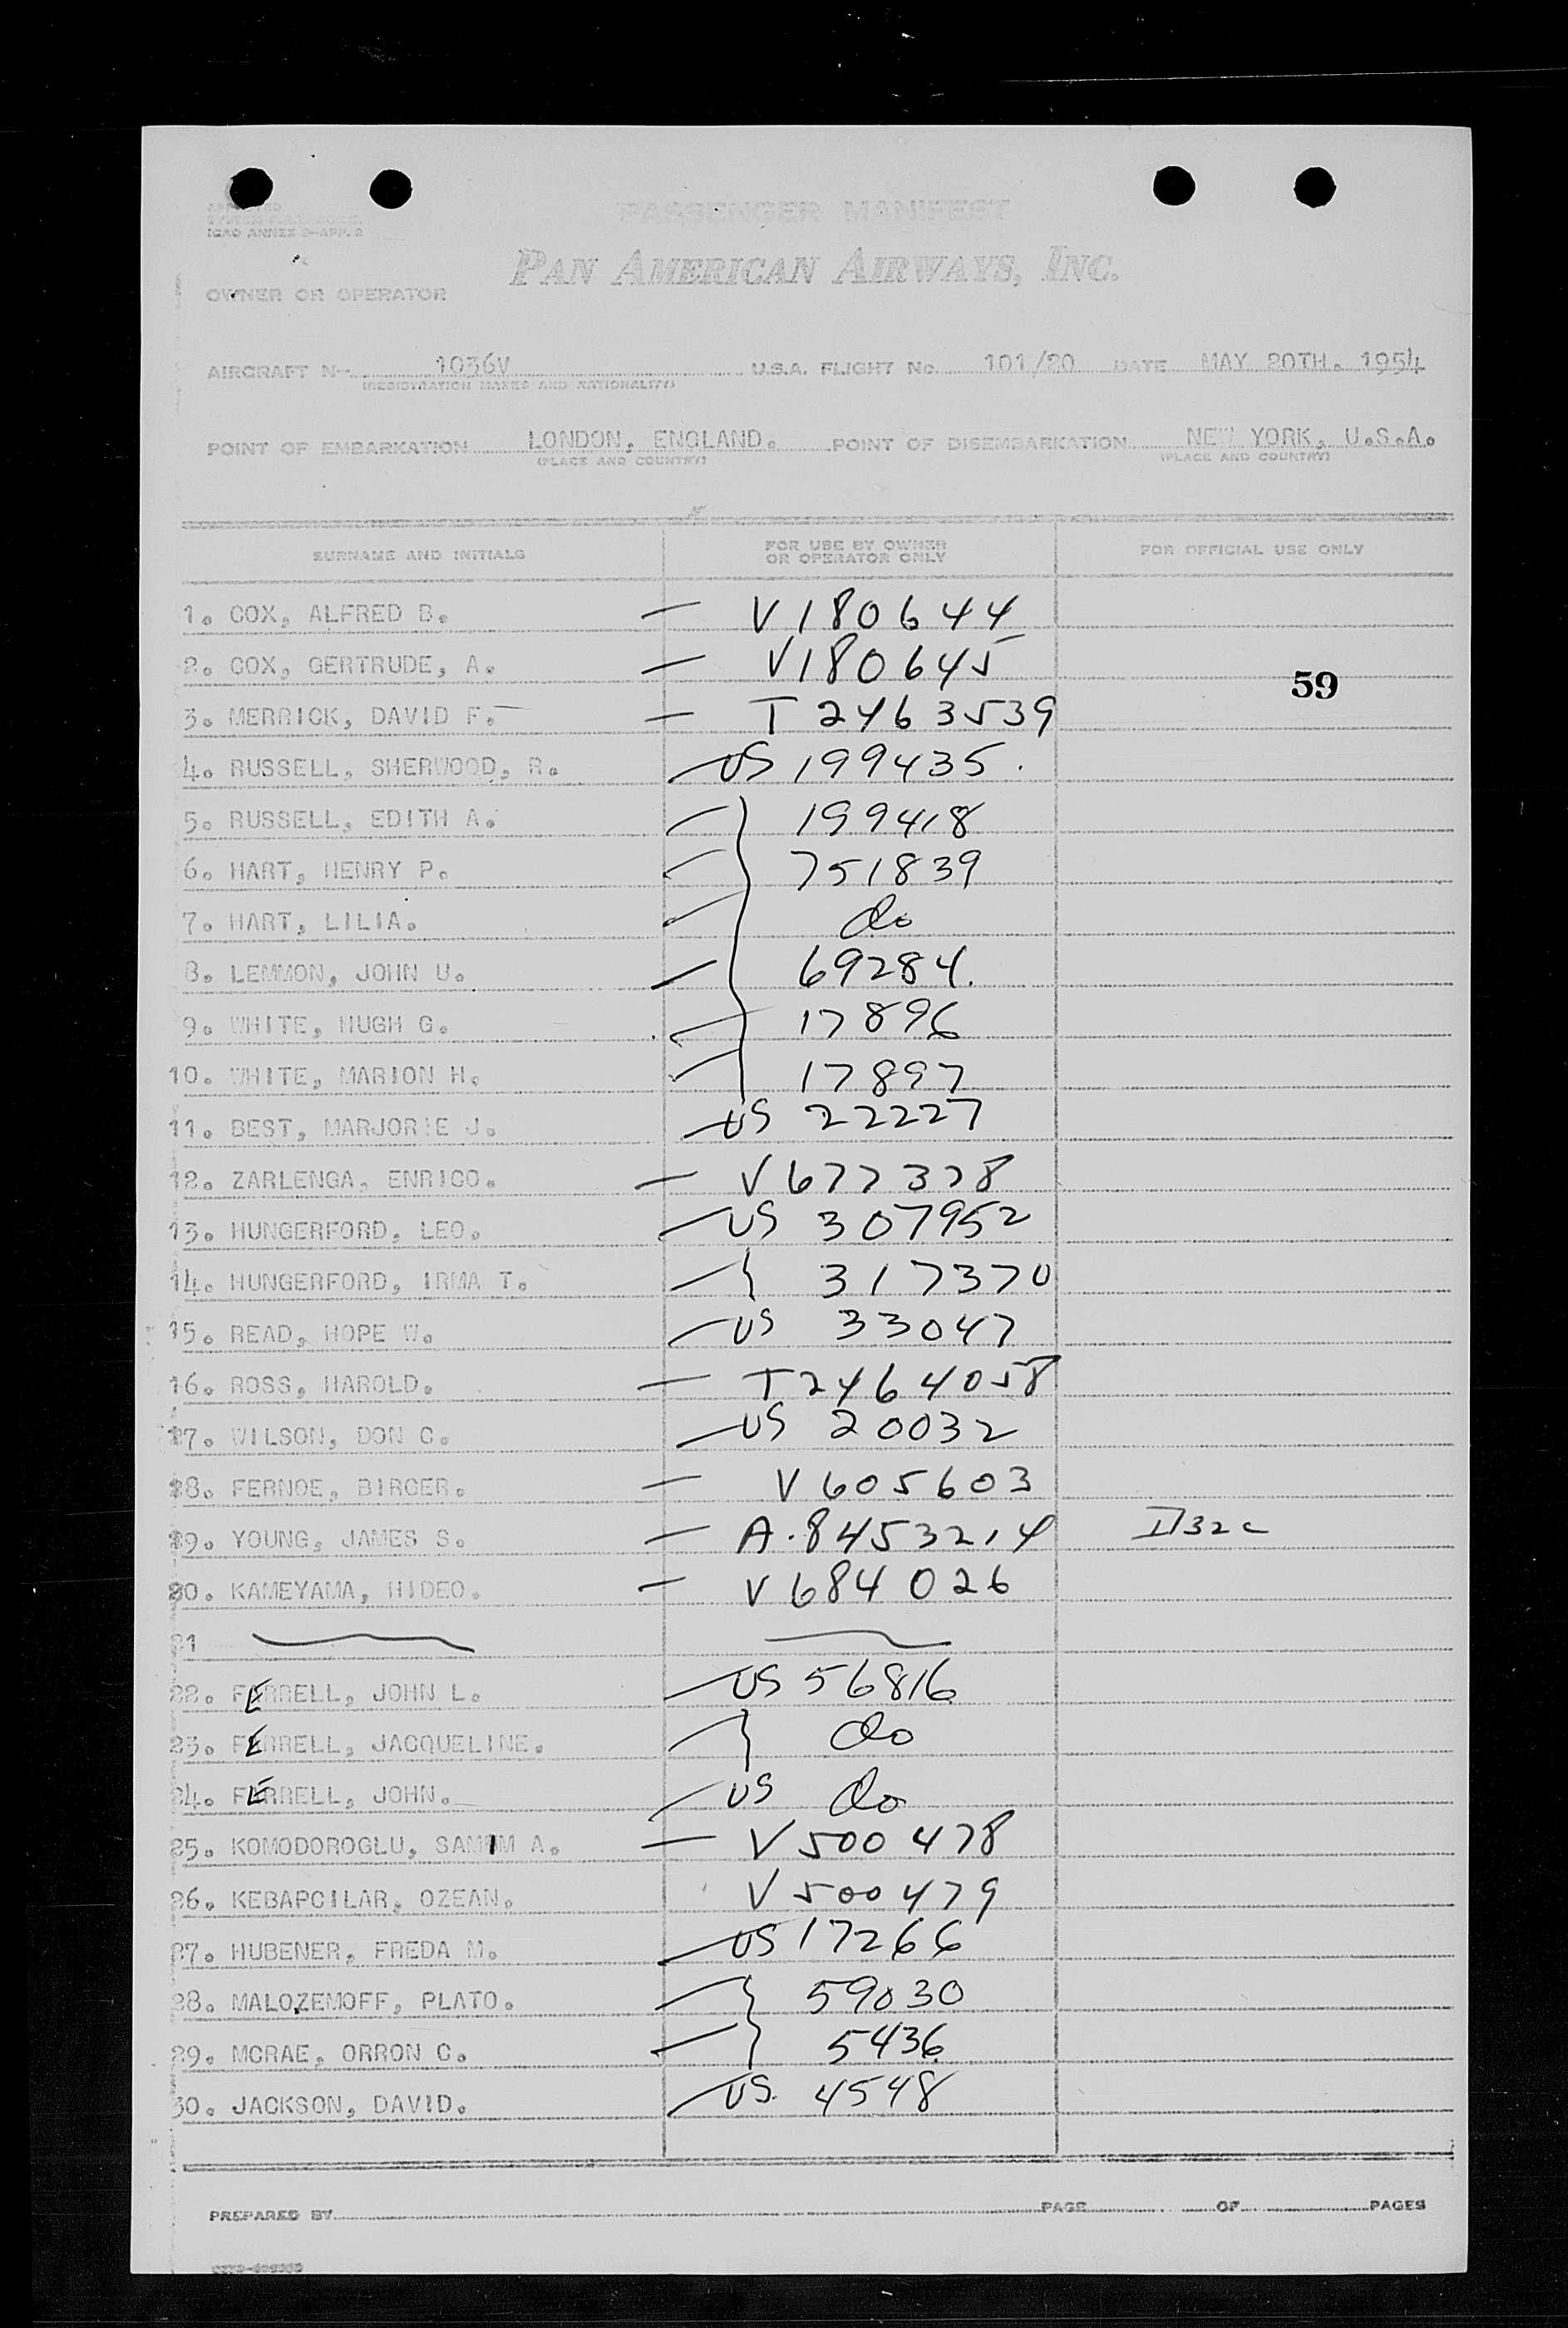 ICAO ANNEX 9-APP. 2
PASSENGER MANIFEST
PAN AMERICAN AIRWAYS, INC.
OWNER OR OPERATOR
AIRCRAFT N- 1036V U.S.A. FLIGHT No. 101/20 DATE MAY 20TH. 1954
(REGISTRATION MARKS AND NATIONALITY)
POINT OF EMBARKATION LONDON, ENGLAND. POINT OF DISEMBARKATION NEW YORK, U.S.A.
(PLACE AND COUNTRY) (PLACE AND COUNTRY)
SURNAME AND INITIALS FOR USE BY OWNER OR OPERATOR ONLY FOR OFFICIAL USE ONLY
1. COX, ALFRED B. — V180644
2. COX, GERTRUDE, A. — V180645
59
3. MERRICK, DAVID F. — T2463539
4. RUSSELL, SHERWOOD, R. US 199435.
5. RUSSELL, EDITH A. 199418
6. HART, HENRY P. 751839
7. HART, LILIA. do
8. LEMMON, JOHN U. 69284.
9. WHITE, HUGH G. 17896
10. WHITE, MARION H. 17897
11. BEST, MARJORIE J. US 22227
12. ZARLENGA, ENRICO. — V677378
13. HUNGERFORD, LEO. US 307952
14. HUNGERFORD, IRMA T. 317370
15. READ, HOPE W. US 33047
16. ROSS, HAROLD. — T2464058
17. WILSON, DON C. US 20032
18. FERNOE, BIRGER. — V605603
19. YOUNG, JAMES S. — A.8453214
20. KAMEYAMA, HIDEO. — V684026
21
22. FERRELL, JOHN L. US 56816
23. FERRELL, JACQUELINE. do
24. FERRELL, JOHN. US do
25. KOMODOROGLU, SAMIM A. — V500478
26. KEBAPCILAR, OZEAN. V500479
27. HUBENER, FREDA M. US 17266
28. MALOZEMOFF, PLATO. 59030
29. MCRAE, ORRON C. 5436
30. JACKSON, DAVID. US. 4548
PREPARED BY PAGE OF PAGES